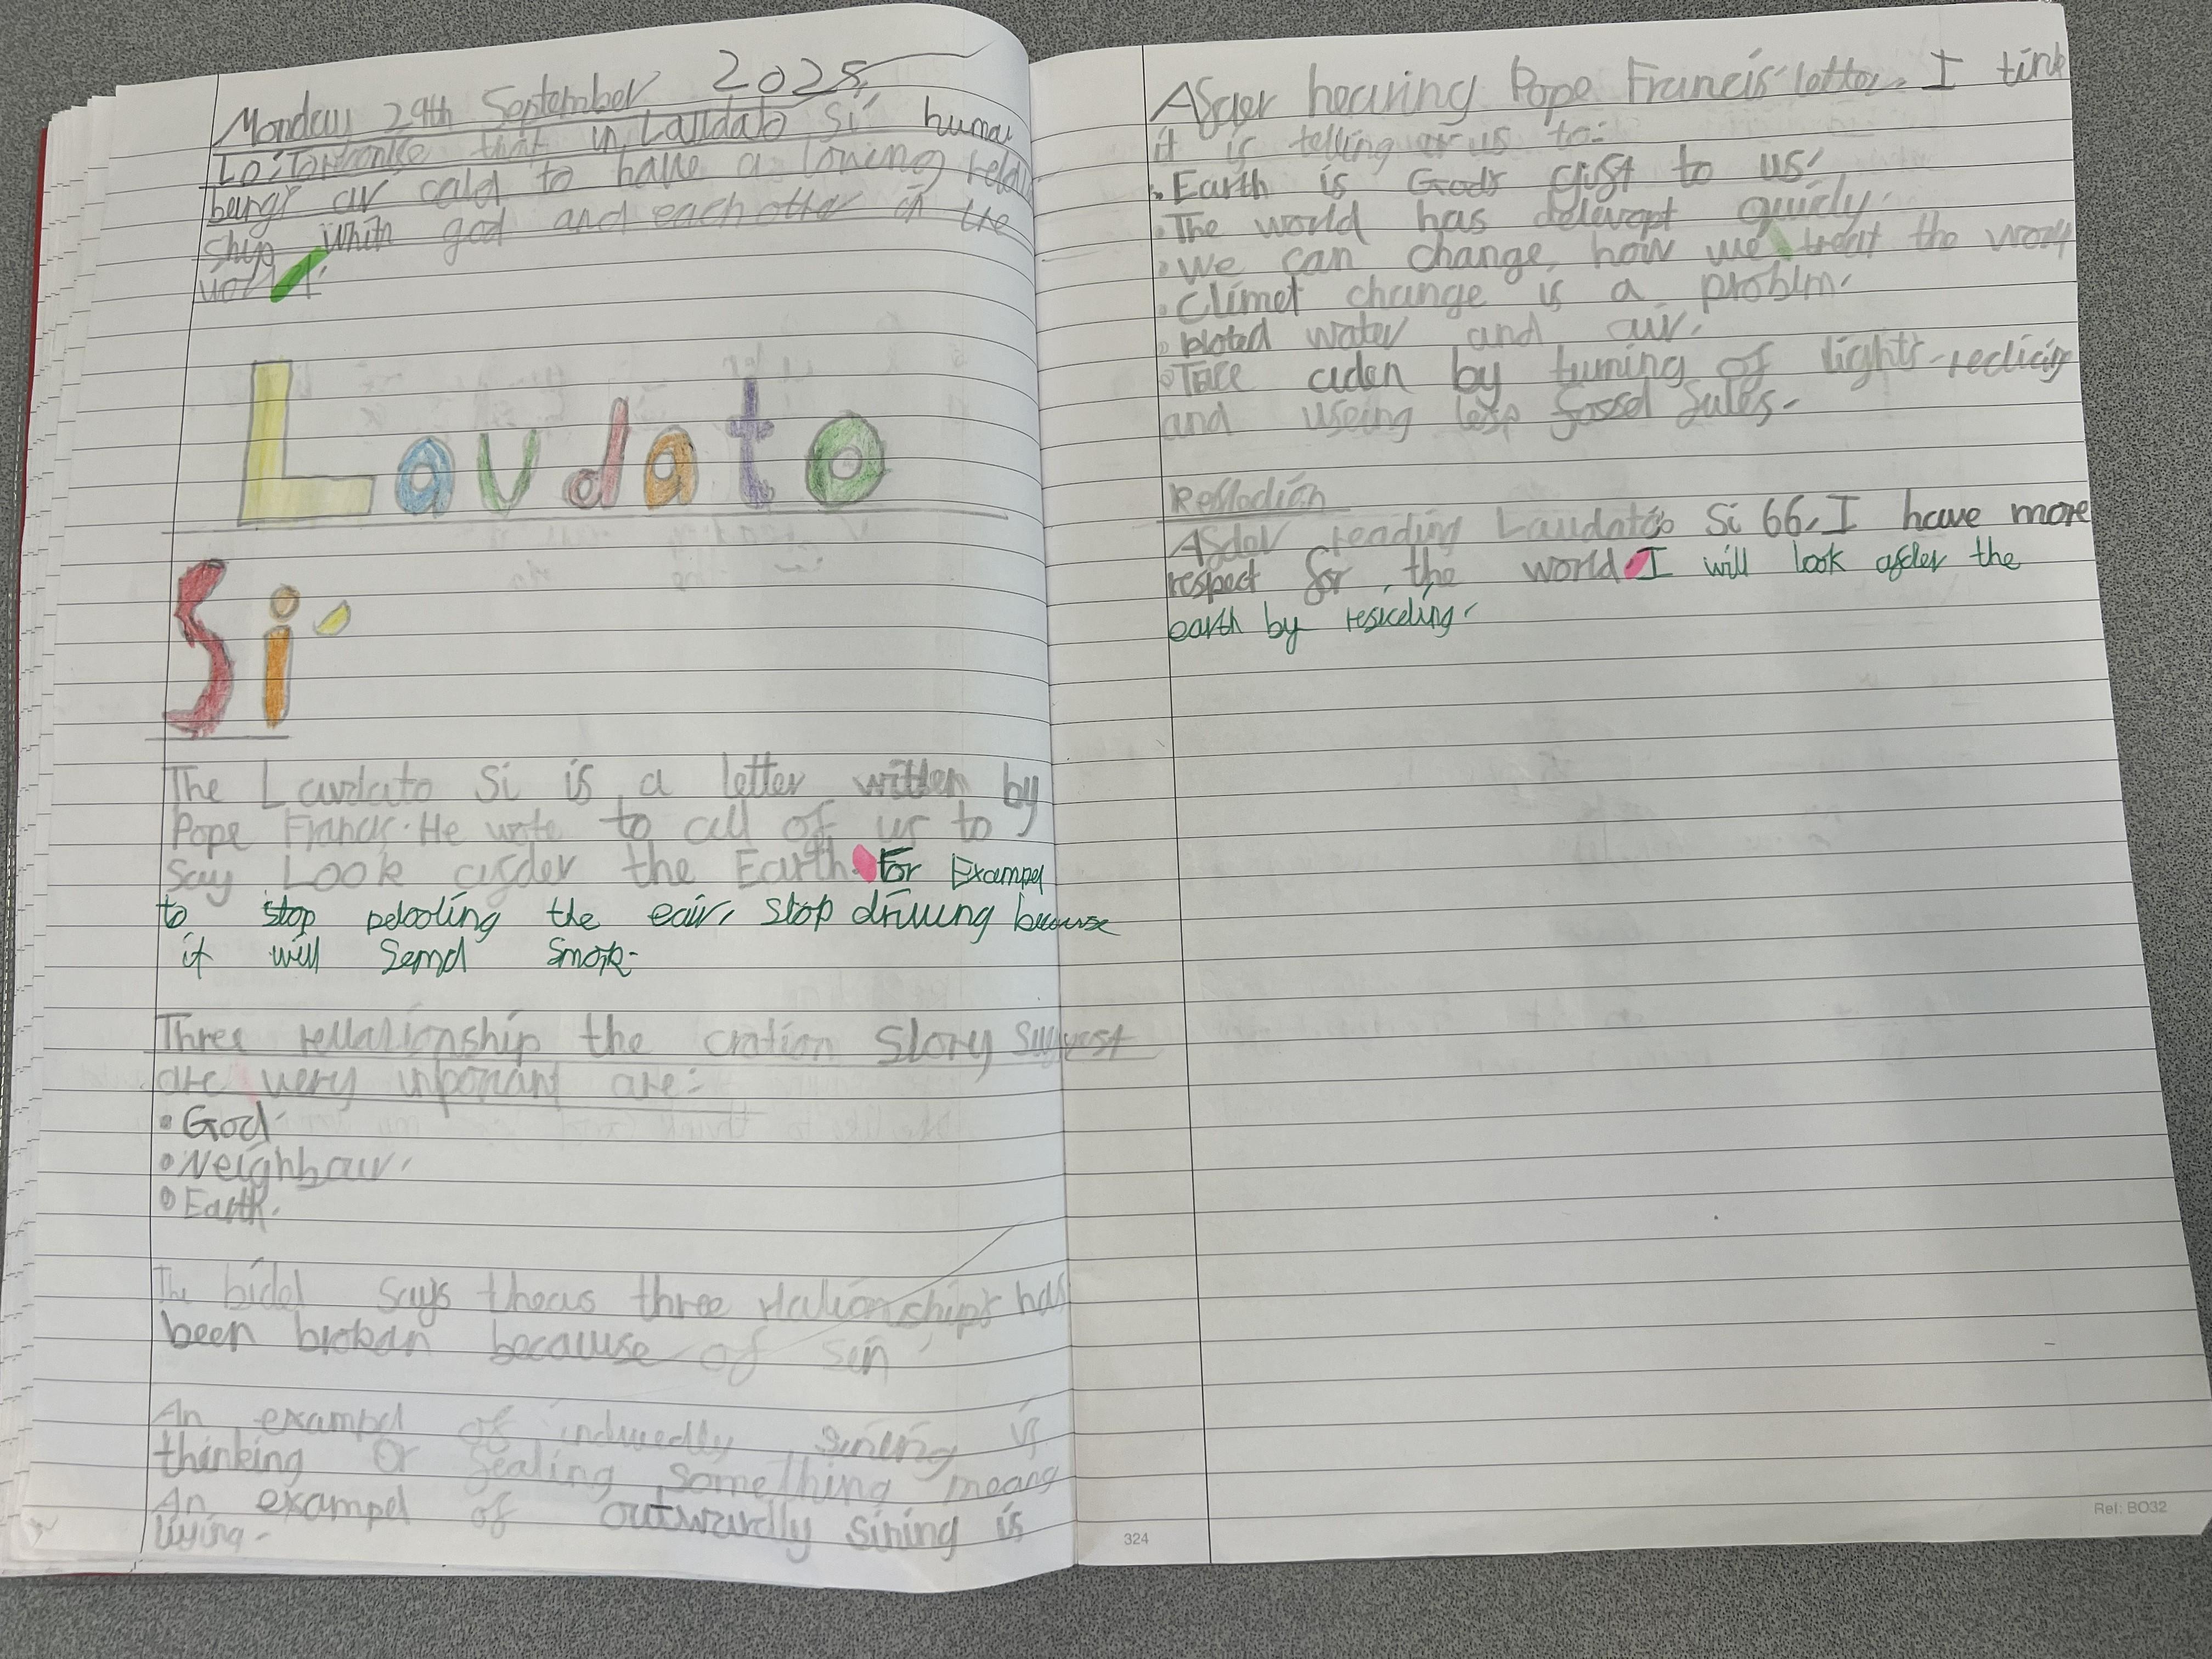 Monday 29th September 2025
Lo: To that in Laudato Si' human
beings ar cald to have a loving relation
ship whith god and each other in the
Laudato
Si'
The Laudato Si is a letter witten by
Pope Francis. He wrote to all of us to
say Look afder the Earth. For Exampel
to stop pelooting the eair, stop driving because
it will Send Smok.
Three rellationship the cration Story Suggest
are very inportant are:
• God.
• Neighbour.
• Earth.
The bidel says theas three rlationships has
been brokan because of sin
An exampel of indwedly sining is
thinking or fealing something meang
An exampel of outwardly sining is
liying.
324
Afder hearing Pope Francis' letter. I tink
it is telling us to:
• Earth is Gods gift to us.
• The world has delevopt quicly.
• We can change, how we treat the world
• Climet change is a problm.
• ploted water and air.
• Tace acden by turning of lights reclicing
and useing less fossel fules.
Reflodion
Afder reading Laudato Si 66, I have more
respect for the world. I will look afder the
earth by resiceling.
Ref: BO32